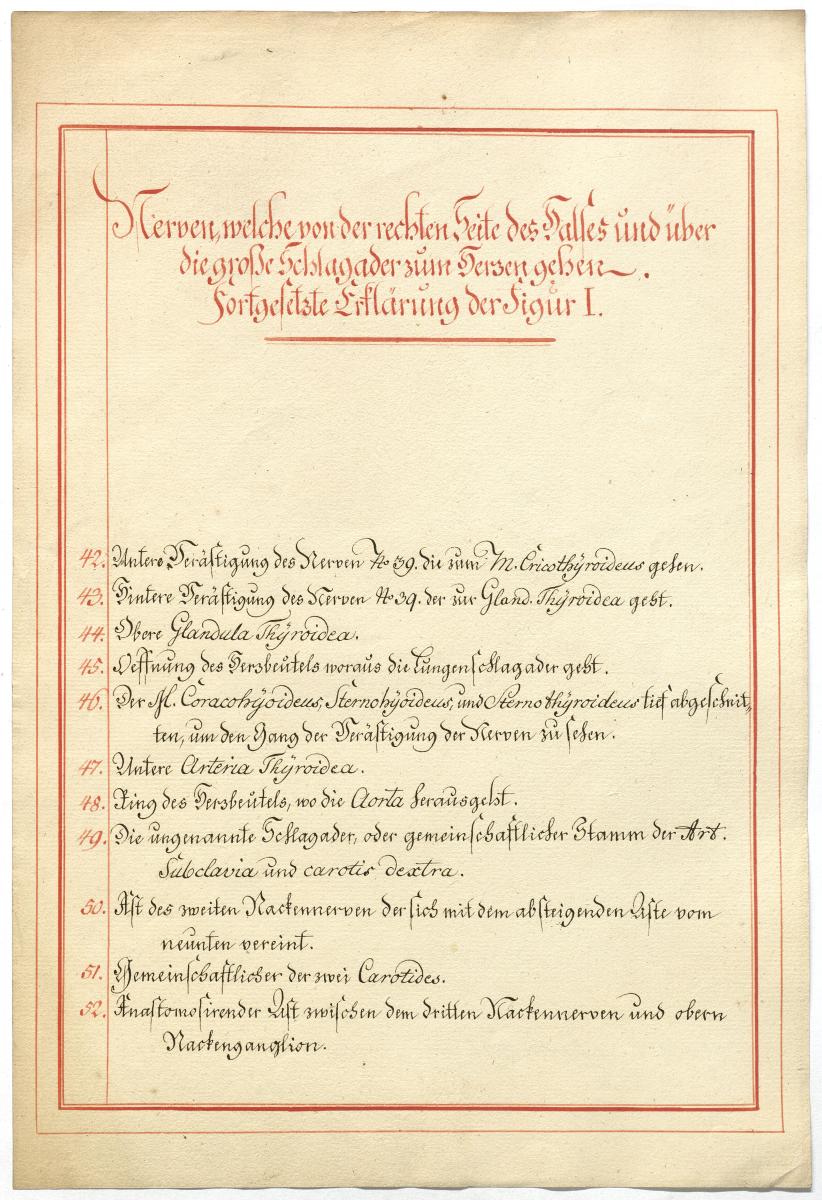 Nerven, welche von der rechten Seite des Halses und über
die große Schlagader zum Herzen gehen.
Fortgesetzte Erklärung der Figur I.
42. Untere Verästigung des Nerven No 39. die zum M. Cricothÿroideus gehen.
43. Hintere Verästigung des Nerven No 39. der zur Gland. Thÿroidea geht.
44. Obere Glandula Thÿroidea.
45. Oeffnung des Herzbeutels woraus die Lungenschlagader geht.
46. Der M. Coracohÿoideus, Sternohÿoideus, und Sternothÿroideus tief abgeschnit=
ten, um den Gang der Verästigung der Nerven zu sehen.
47. Untere Arteria Thÿroidea.
48. Ring des Herzbeutels, wo die Aorta herausgeht.
49. Die ungenannte Schlagader, oder gemeinschaftlicher Stamm der Art.
Subclavia und carotis dextra.
50. Ast des zweiten Nackennerven der sich mit dem absteigenden Aste vom
neunten vereint.
51. Gemeinschaftlicher der zwei Carotides.
52. Anastomosirender Ast zwischen dem dritten Nackennerven und obern
Nackenganglion.